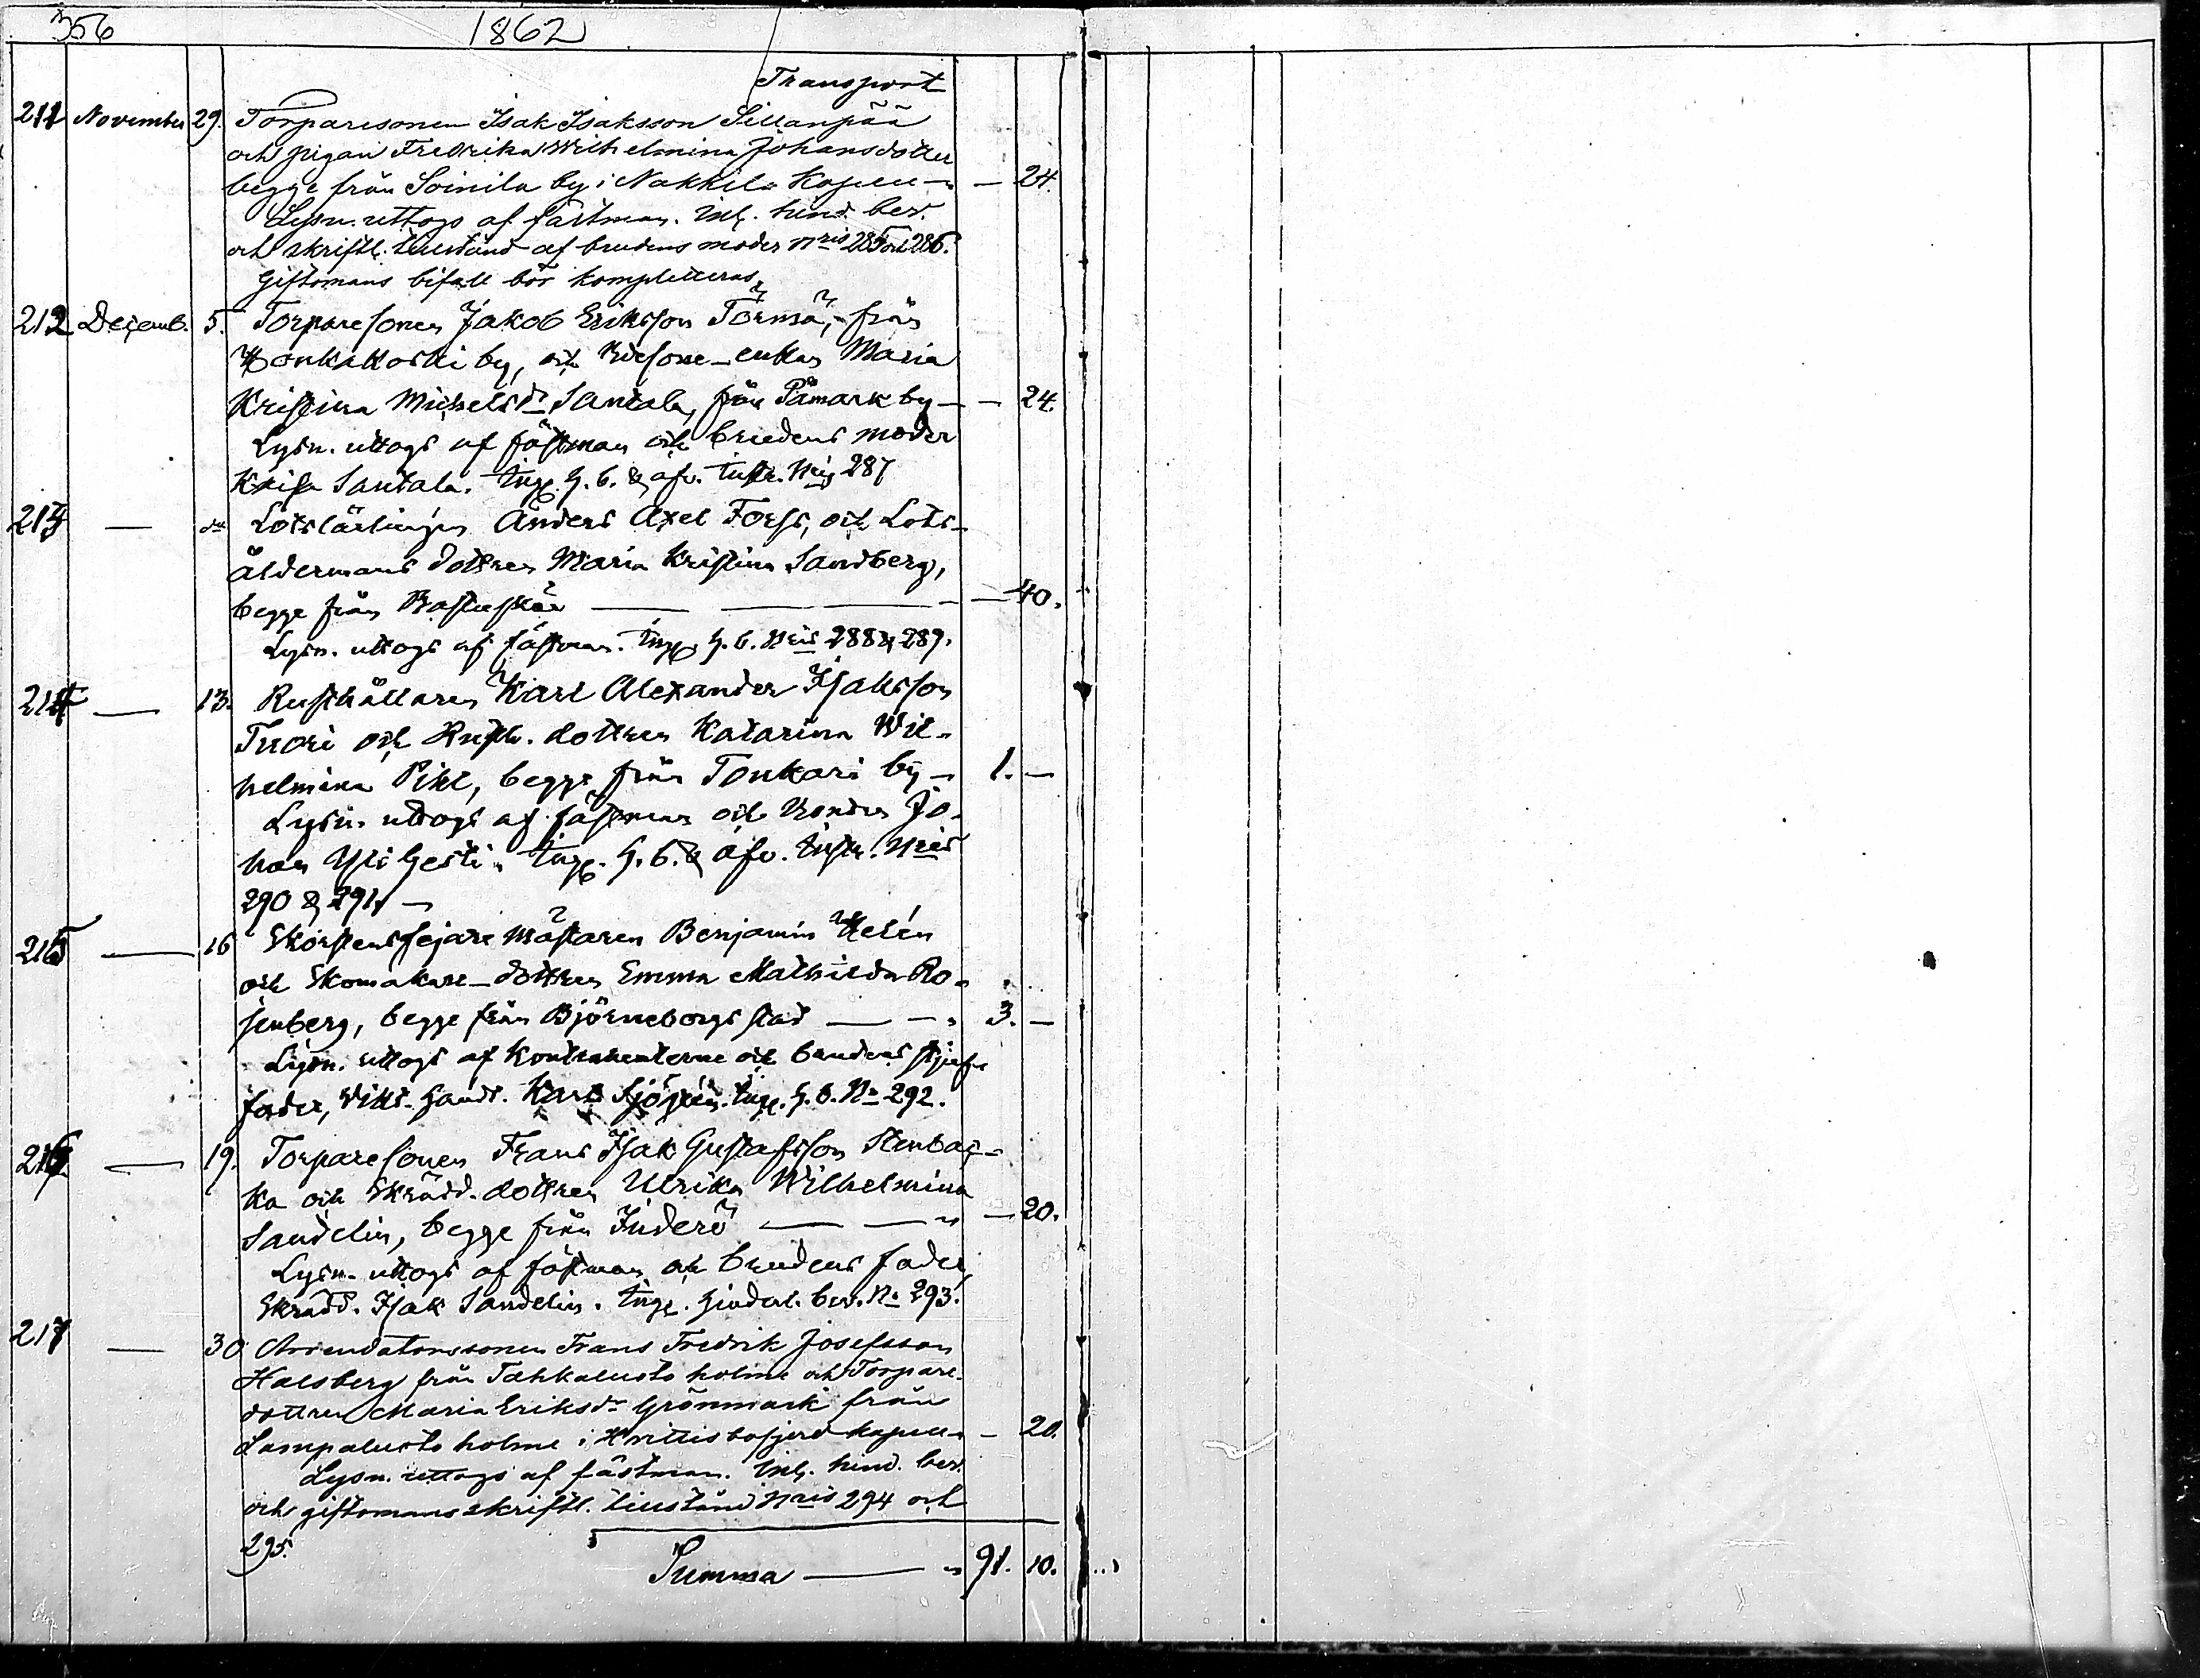 356 1862
Transport
211 November 29. Torparesonen Isak Isaksson Sillanpää
och pigan Fredrika Wilhelmina Johansdotter
begge från Soinila by i Nakkila Kapell — — 24.
Lysn. uttogs af fästman. Inl. hind. bev.
och skriftl. tillstånd af brudens moder Nris 285 och 286.
Giftomans bifall bör kompletteras.
212 Decemb. 5. Torparesonen Jakob Eriksson Törmä, från
Honkakoski by, och enkan Maria
Kristina Michelsdr Santala, från Påmark by — — 24.
Lysn. uttogs af fästman och brudens moder
Kaisa Santala. Ing. h. b. & afv. Nris 287
213 — do Lotslärlingen Anders Axel Forss, och Lots-
åldermans dottren Maria Kristina Sandberg,
begge från Bastuskär — — — — 40.
Lysn. uttogs af fästman. Ing. h. b. Nris 288 & 289.
214 — 13. Rusthållaren Karl Alexander Isaksson
Tuori och Rusth. dottren Katarina Wil-
helmina Pihl, begge från Tonkari by — 1. —
Lysn. uttogs af fästman och bonden Jo-
han Yli Gesti. Ing. h. b. & afv. Nris
290 & 291. —
215 — 16 Skorstensfejare Mästaren Benjamin Helén
och Skomakare-dottren Emma Mathilda Ro-
senberg, begge från Björneborgs stad — — 3. —
Lysn. uttogs af Kontrahenterne och brudens stjuf-
fader, Vikt. handl. Karl Ing. h. b. No 292.
216 — 19. Torparesonen Frans Isak Gustafsson Stenbac-
ka och Skrädd. dottren Ulrika Wilhelmina
Sandelin, begge från Inderö — — — 20.
Lysn. uttogs af fästman och brudens fader,
Skrädd. Isak Sandelin. Ing. hinderl. bev. No 293.
217 — 30. Arrendatorssonen Frans Fredrik Josefsson
Halsberg från Tahkaluoto holme och Torpare-
dottren Maria Eriksdr Grönmark från
Lampaluoto holme i Hvittisbofjerd kapell — 20.
Lysn. uttogs af fästman. Inl. hind. bev.
och giftomans skriftl. tillstånd Nris 294 och
295.
Summa — 91. 10.